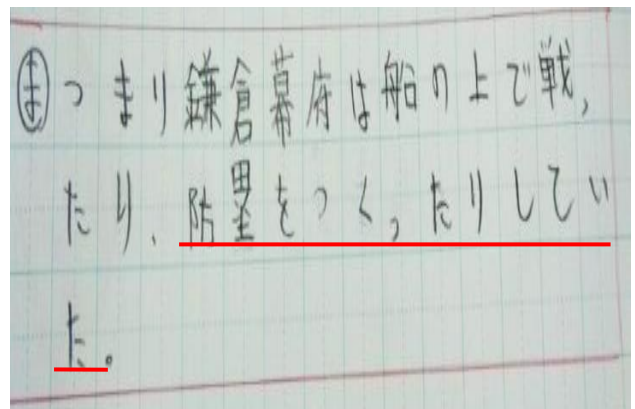 ㋮つまり鎌倉幕府は船の上で戦っ
たり、防塁をつくったりしてい
た。